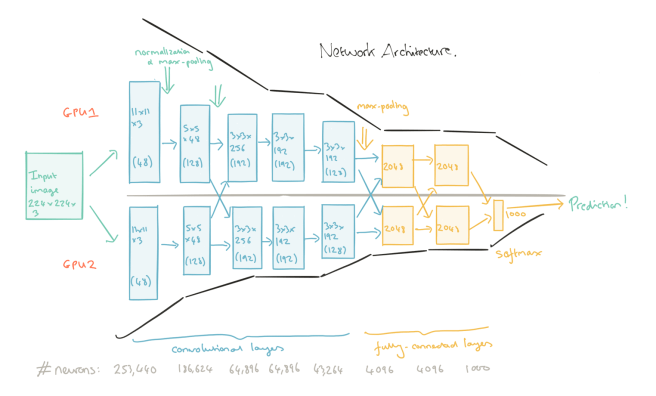 Network Architecture.
normalization
& max-pooling
GPU1
11x11
x3
(48)
5x5
x48
(128)
3x3x
256
(192)
3x3x
192
(192)
3x3x
192
(128)
max-pooling
2048
2048
Input
image
224x224x
3
11x11
x3
(48)
5x5
x48
(128)
3x3x
256
(192)
3x3x
192
(192)
3x3x
192
(128)
2048
2048
1000
Prediction!
GPU2
softmax
convolutional layers
fully-connected layers
# neurons: 253,440 186,624 64,896 64,896 43,264 4096 4096 1000